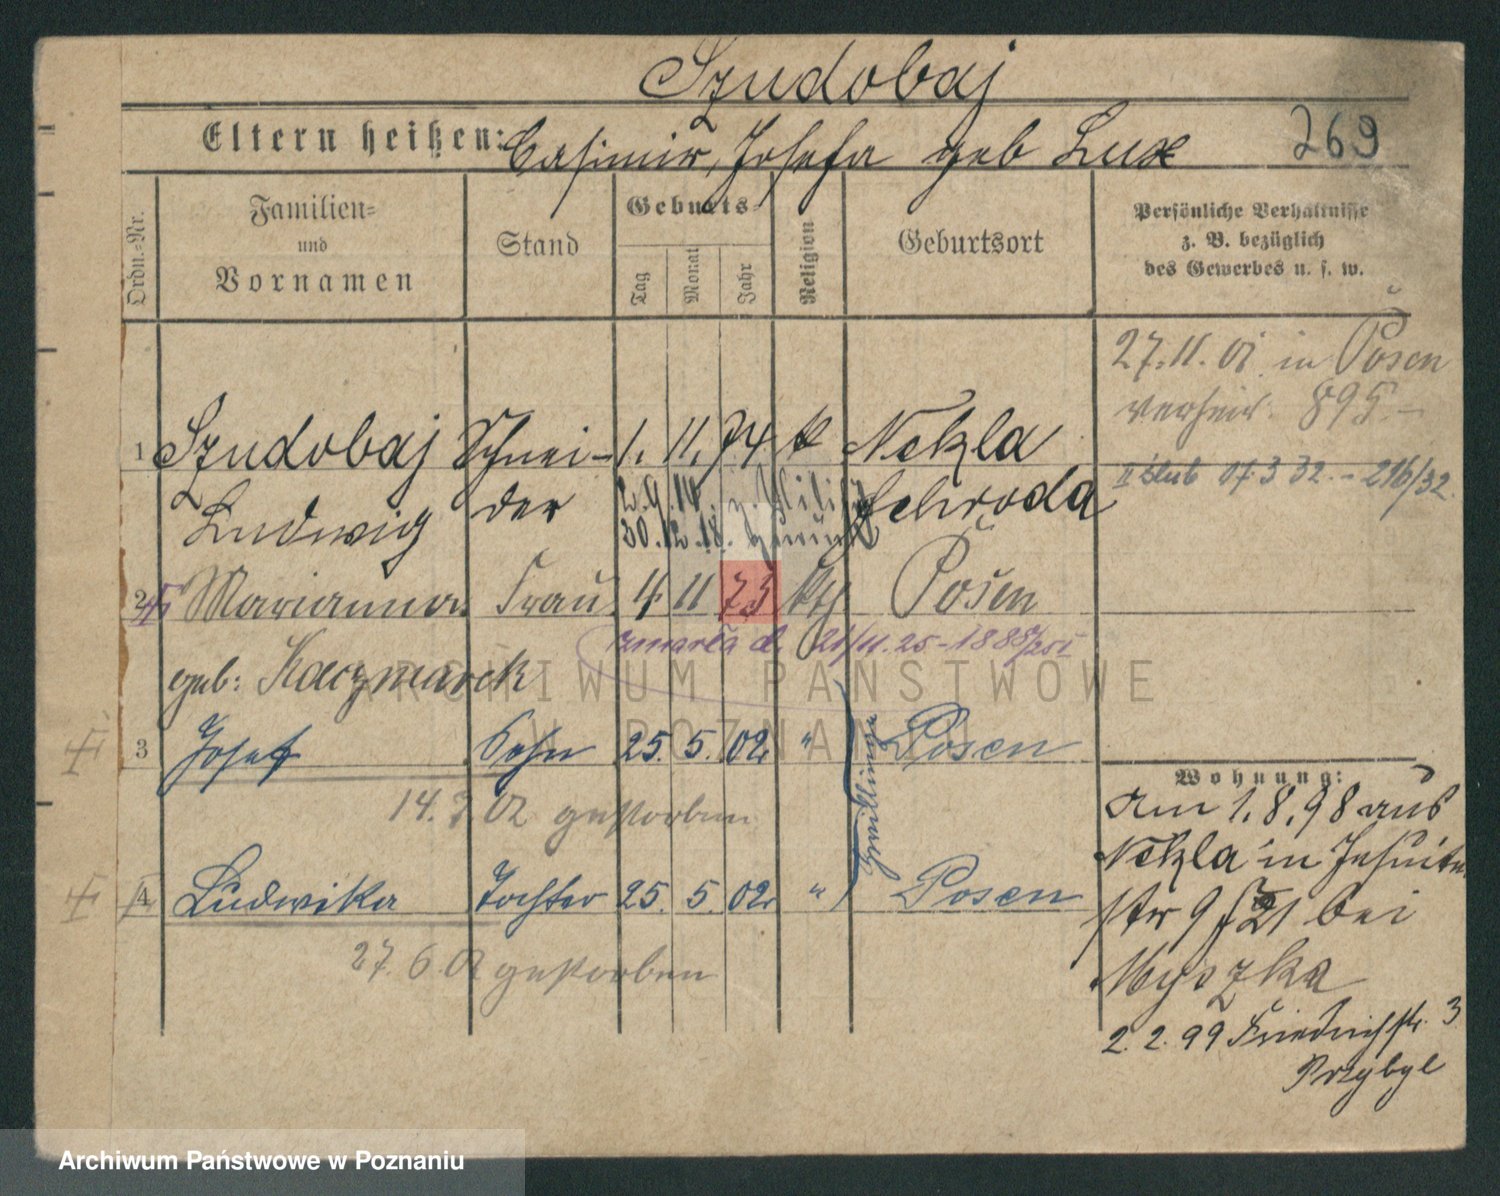 Szudobaj
Eltern heißen: Casimir, Josefa geb Lux
269
Ordn.-Nr.
Familien-
und
Vornamen
Stand
Geburts-
Tag
Monat
Jahr
Religion
Geburtsort
Persönliche Verhältnisse
z. B. bezüglich
des Gewerbes u. s. w.
27.11.01 in Posen
verheir. 895 –
1 Szudobaj Schnei- 1. 11. 74 k Nekla
II ślub 07.3 32. – 216/32.
Ludwig der Schroda
2 Marianna Frau 4 11 73 kth Posen
zmarła d. 21/11.25 – 1885/25 I
geb: Kaczmarek
ARCHIWUM PAŃSTWOWE
W POZNANIU
3 Josef Sohn 25. 5. 02. " Posen
Zwillinge
14. 7. 02 gestorben
4 Ludwika Tochter 25. 5. 02. " Posen
27. 6. 02 gestorben
Wohnung:
am 1.8.98 aus
Nekla in Jesuiten
str 9 bei
Myszka
2. 2. 99 Friedrichstr. 3
Przybyl
Archiwum Państwowe w Poznaniu